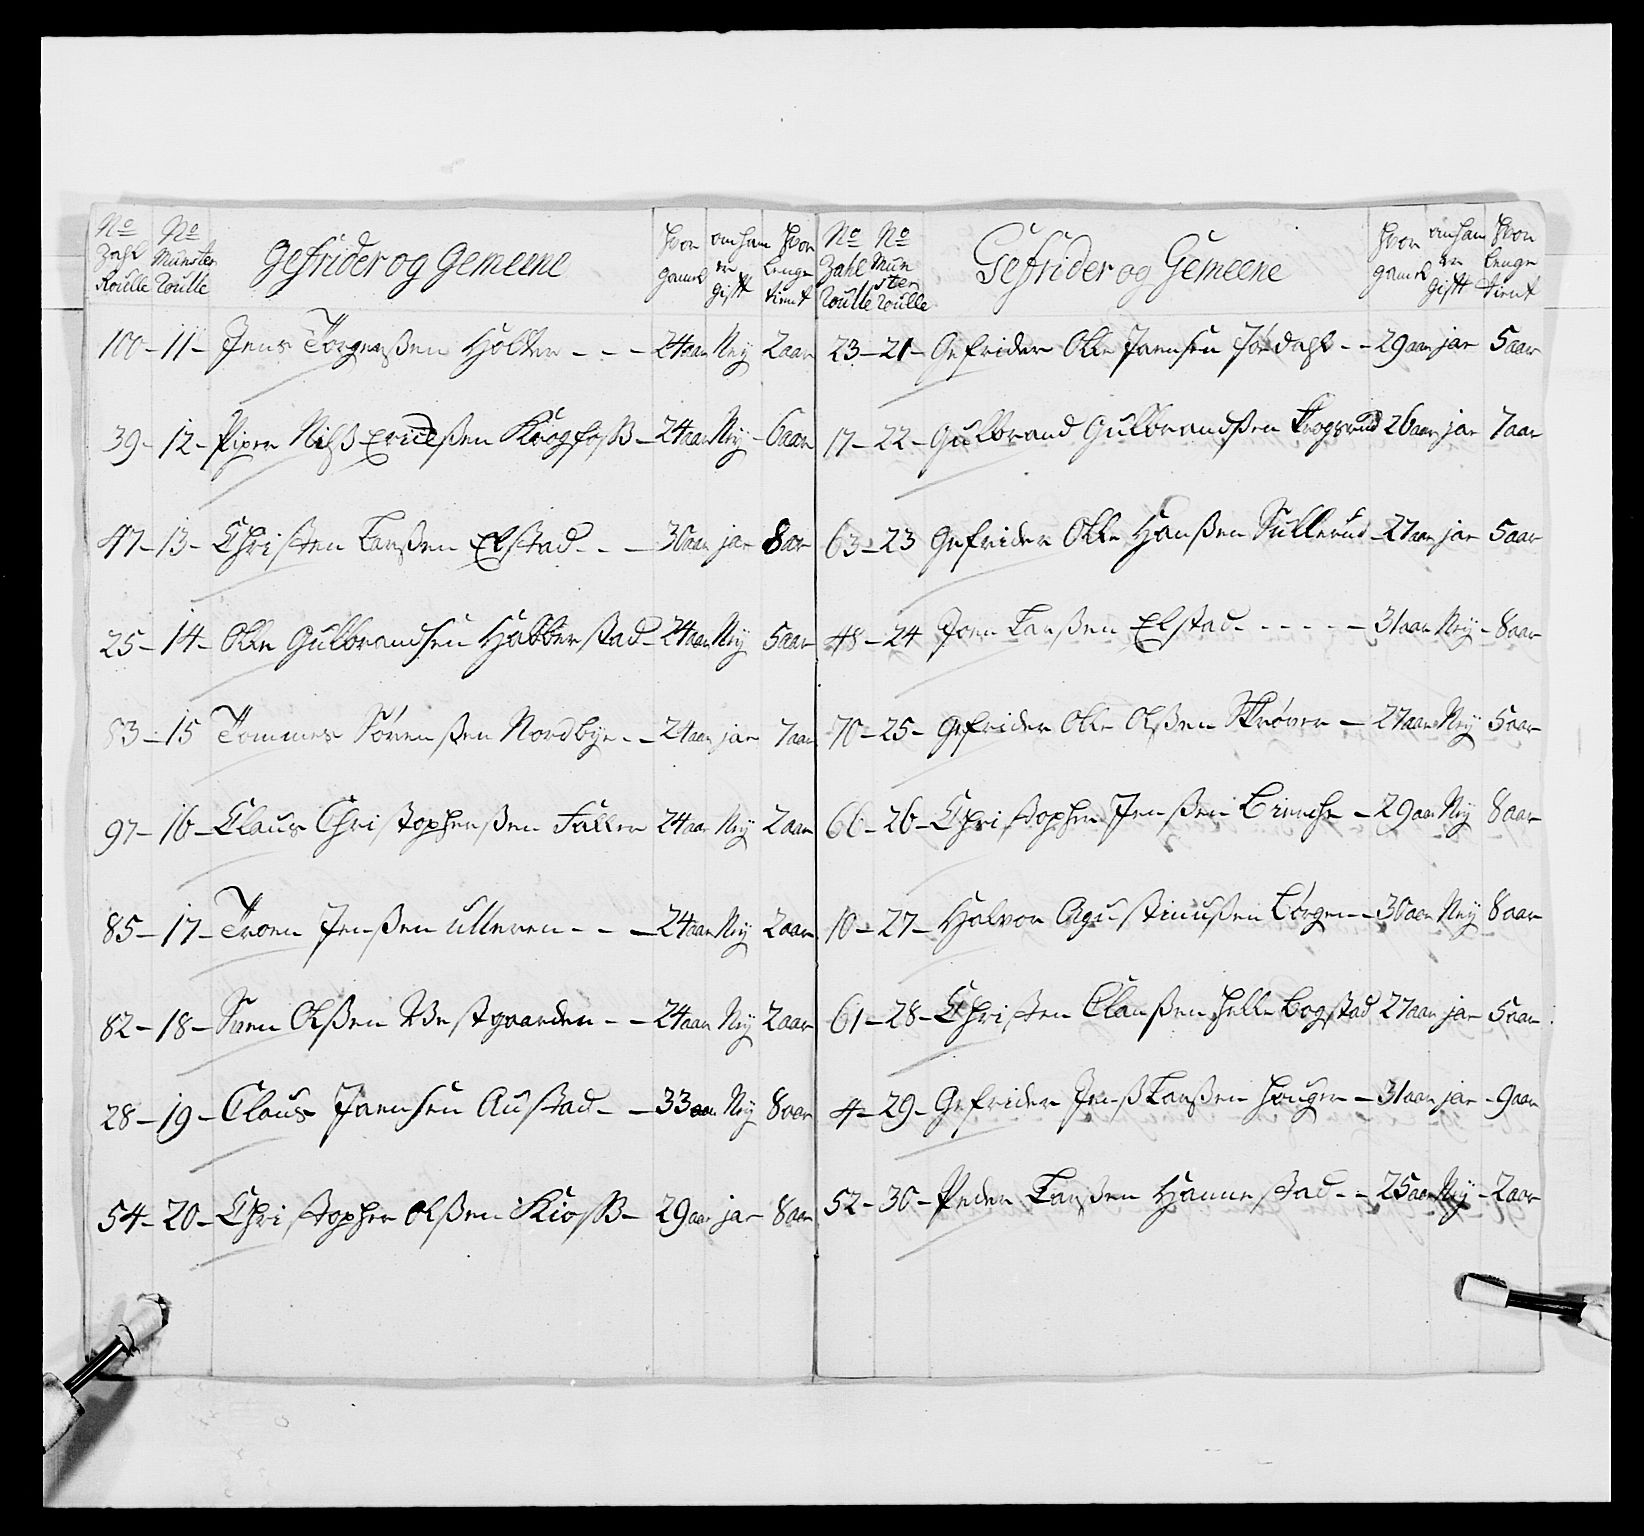 No Zahl Roulle
No Munster Roulle
Gefrider og Gemeene
hvor gamel
om han er gift
hvor lenge tient
100 - 11 - Jens Torgerßen Holter - - - 24 aar Ney 2 aar
39 - 12 - Piper Nilß Ericßen Krogfoß - 24 aar Ney - 6 aar
47 - 13 - Christen Larßen Elstad - - - 30 aar jar 8 aar
25 - 14 - Olle Gulbrandsen Habberstad 24 aar Ney 5 aar
83 - 15 Tommes Sörenßen Nordbye - - 24 aar jar 7 aar
97 - 16 - Claus Christopherßen Faller 24 aar Ney 2 aar
85 - 17 - Troen Jenßen Ulleren - - - 24 aar Ney 2 aar
82 - 18 - Sven Olßen Westgaarden - - 24 aar Ney 2 aar
28 - 19 - Claus Joensen Austad - - 33 aar Ney 8 aar
54 - 20 - Christopher Olßen Kioß - 29 aar jar 8 aar
No Zahl Roulle
No Munster Roulle
Gefrider og Gemeene
hvor gamel
om han er gift
hvor lenge tient
23 - 21 - Gefrider Olle Joensen Jördahl - - 29 aar jar 5 aar
17 - 22 - Gulbrand Gulbrandßen Krogsrud 26 aar jar 7 aar
63 - 23 Gefrider Olle Hanßen Sullerud - 27 aar jar 5 aar
48 - 24 Joen Larßen Elstad - - - - - 31 aar Ney - 8 aar
70 - 25 - Gefrider Olle Olßen Skröver - 27 aar Ney 5 aar
66 - 26 - Christopher Jenßen - 29 aar Ney 8 aar
10 - 27 - Halvor Agustinußen Börgen - - 30 aar Ney 8 aar
61 - 28 - Christen Clausßen Helle Bogstad 27 aar jar - 5 aar
4 - 29 - Gefrider Jenß Larßen Houger - 31 aar jar - 9 aar
52 - 30 - Peder Larßen Hannestad - - 25 aar Ney - 2 aar